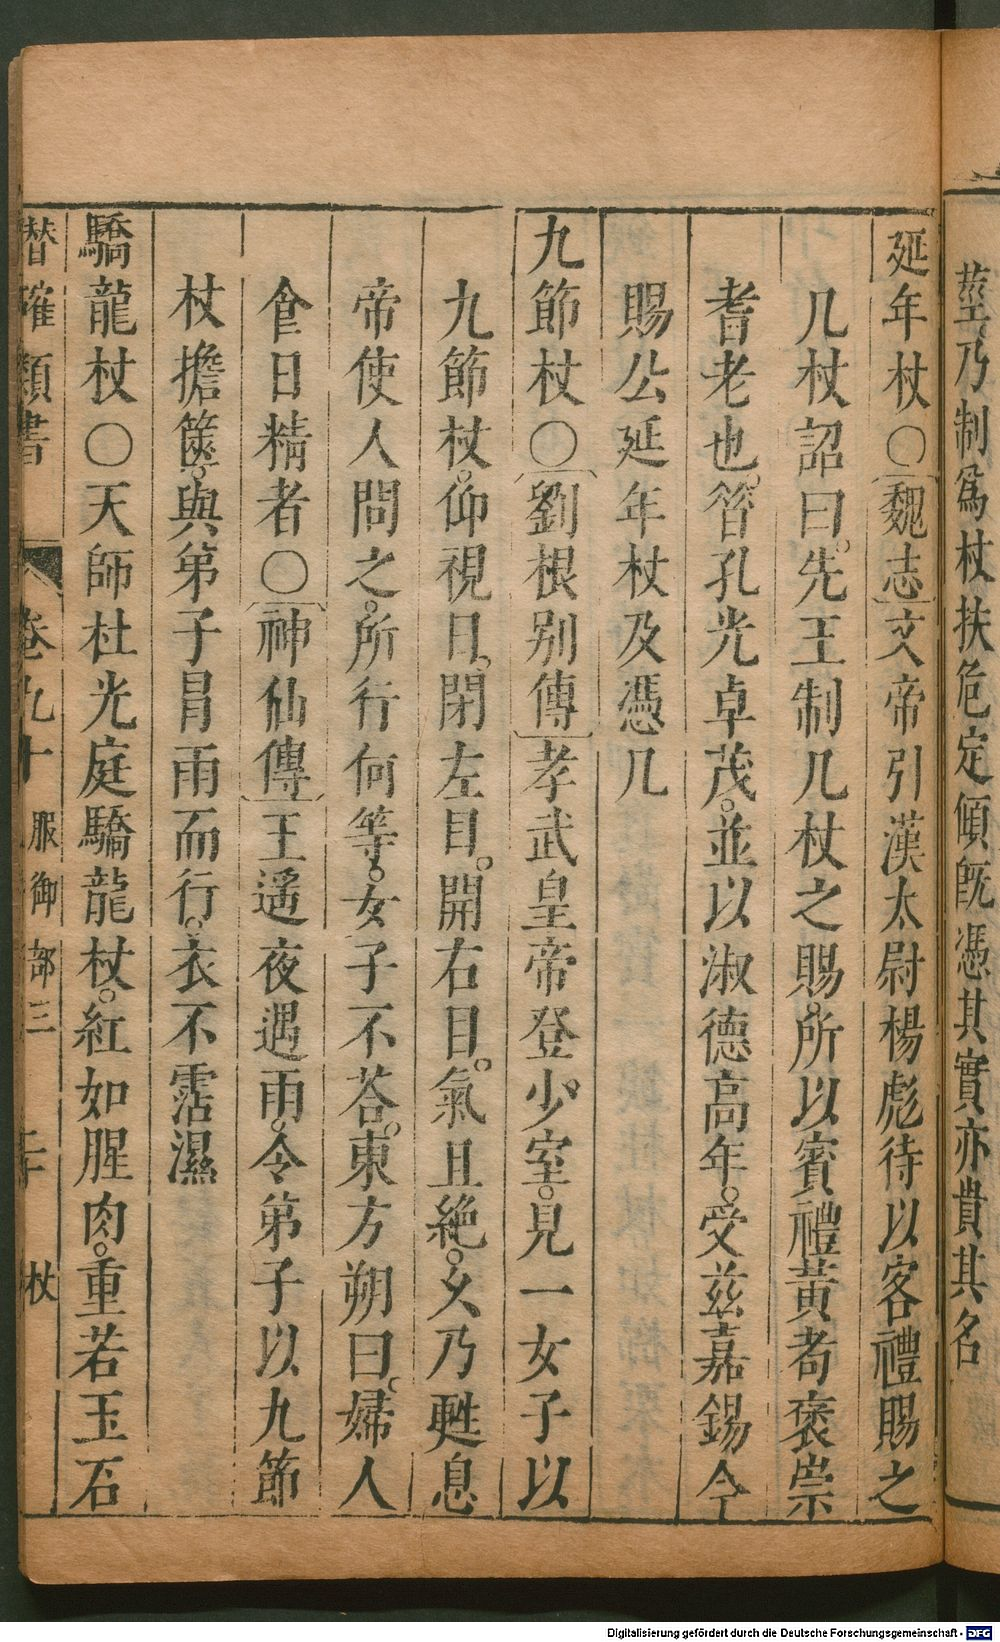 莖乃制爲杖扶危定傾旣憑其實亦貴其名
延年杖○魏志文帝引漢太尉楊彪待以客禮賜之
几杖詔曰。先王制几杖之賜。所以賓禮黃耉褒崇
耆老也。昝孔光卓茂。並以淑德高年。受茲嘉錫今
賜公延年杖及憑几
九節杖○劉根别傳孝武皇帝登少室。見一女子以
九節杖。仰視日。閉左目。開右目。氣且絶。乆乃甦息
帝使人問之。所行何等。女子不荅。東方朔曰。婦人
食日精者○神仙傳王遥夜遇雨。令弟子以九節
杖擔篋。與弟子冐雨而行。衣不霑濕
驕龍杖○天師杜光庭驕龍杖。紅如腥肉。重若玉石
潜確類書 卷九十 服御部三 杖
Digitalisierung gefördert durch die Deutsche Forschungsgemeinschaft - DFG